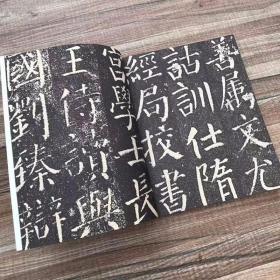 善屬文尤
詁訓仕隋
經局校書
宫學士長
王侍讀與
國劉臻辯